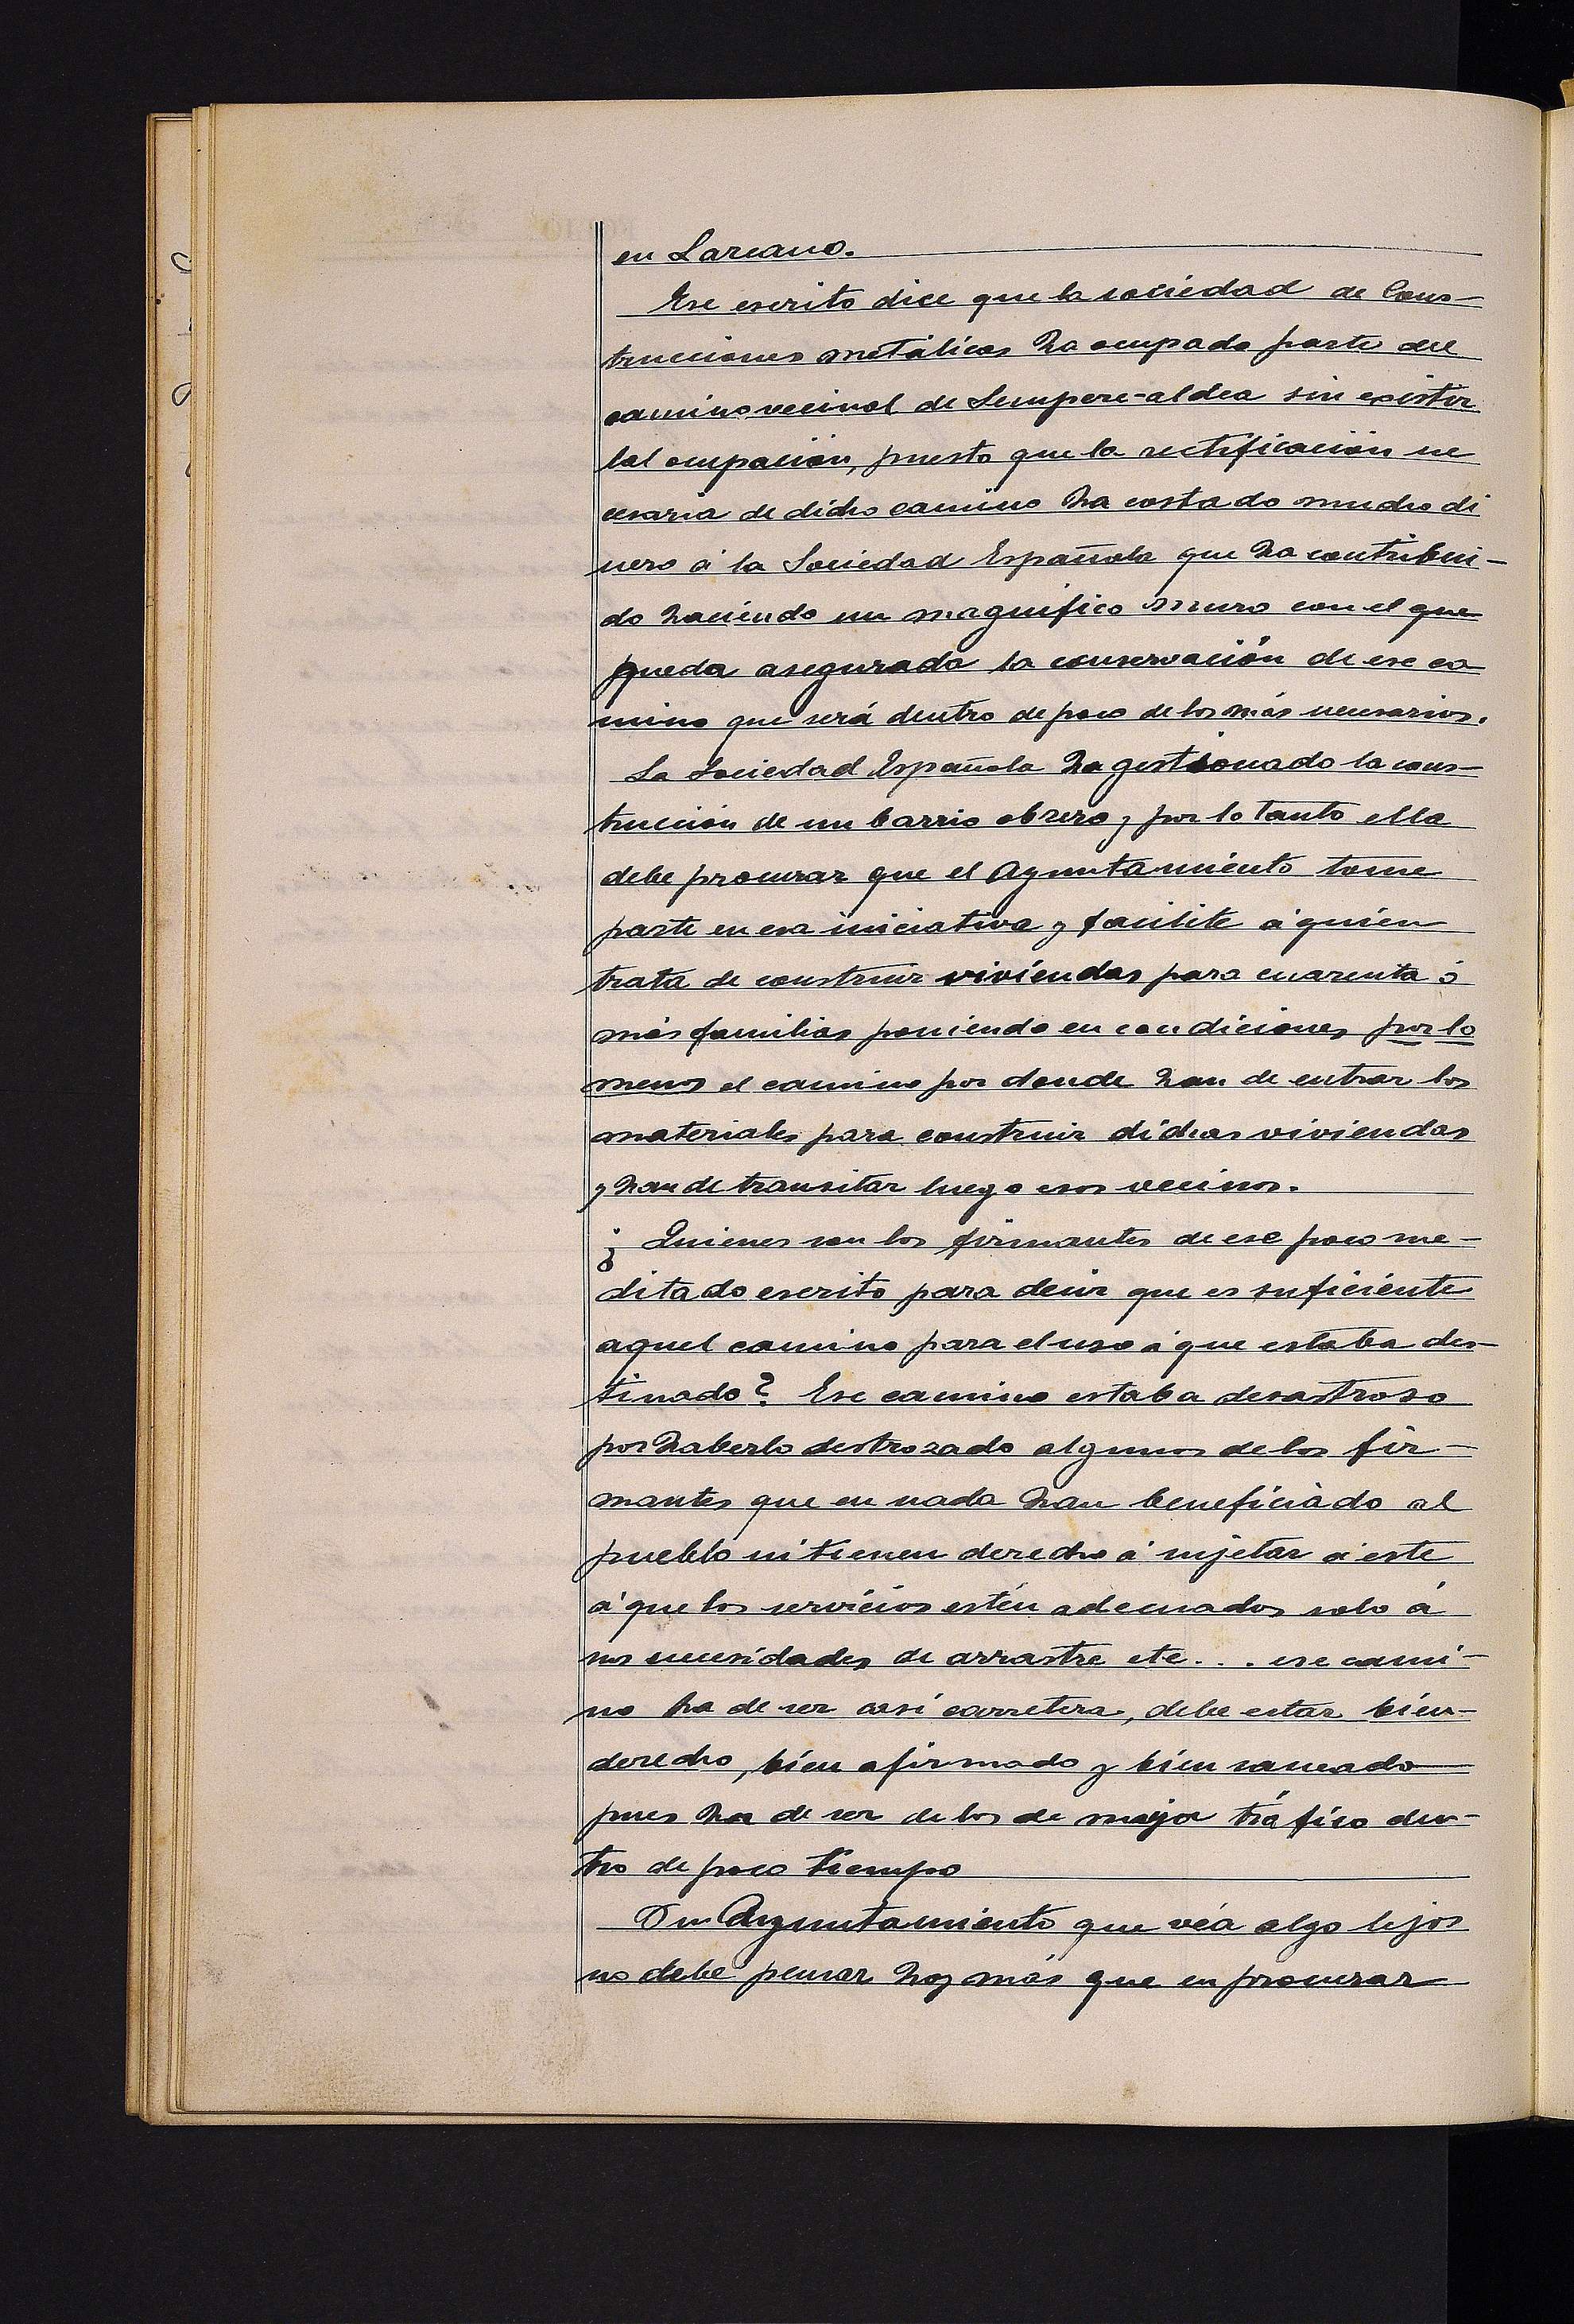 en Lazcano.
Ese escrito dice que la sociedad de Cons-
trucciones metálicas ha ocupado parte del
camino vecinal de Sempere-aldea sin existir
tal ocupación, puesto que la rectificación ne
cesaria de dicho camino ha costado mucho di
nero á la Sociedad Española que ha contribui-
do haciendo un magnífico muro con el que
queda asegurada la conservación de ese ca
mino que será dentro de poco de los más necesarios.
La Sociedad Española ha gestionado la cons-
trucción de un barrio obrero y por lo tanto ella
debe procurar que el Ayuntamiento tome
parte en esa iniciativa y facilite á quien
trata de construir viviendas para cuarenta ó
más familias poniendo en condiciones por lo
menos el camino por donde han de entrar los
materiales para construir dichas viviendas
y han de transitar luego esos vecinos.
¿Quienes son los firmantes de ese poco me-
ditado escrito para decir que es suficiente
aquel camino para el uso á que estaba des-
tinado? Ese camino estaba desastroso
por haberlo destrozado algunos de los fir-
mantes que en nada han beneficiado al
pueblo ni tienen derecho á sujetar á este
á que los servicios estén adecuados solo á
sus necesidades de arrastre etc... ese cami-
no ha de ser casi carretera, debe estar bien-
derecho, bien afirmado y bien saneado
pues ha de ser de los de mayor tráfico den-
tro de poco tiempo
Un Ayuntamiento que véa algo lejos
no debe pensar hoy más que en procurar